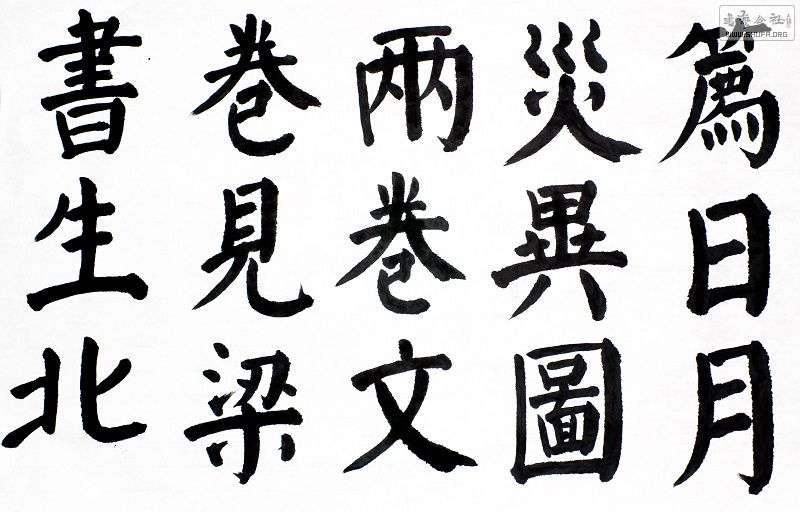 篇日月
災異圖
兩卷文
卷見梁
書生北
WWW.SHUFA.ORG